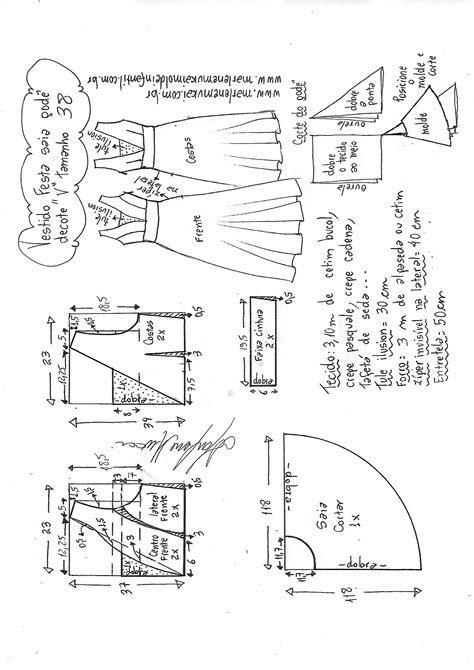 Vestido Festa saia godê
decote "V" Tamanho 38
www.marlenemukai.com.br
www.marlenemukaimoldeinfantil.com.br
tule
ilusion
Costas
ziper
na
lateral
tule
ilusion
Frente
Corte do godê
dobre
o tecido
ao meio
ourela
dobre
a ponta
ourela
Posicione
o molde e
corte
molde
23
12,25
5
1,5
18,5
Costas
2x
1x
dobra
8
34
7,5
3
0,5
19,5
Faixa cintura
2x
dobra
0,5
Tecido: 3,10m de cetim bucol,
crepe pasquale, crepe cadena,
Tafetá de seda...
Tule ilusion = 30 cm
Forro = 3 m de alpaseda ou cetim
ziper invisivel na lateral = 40 cm
Entretela = 50 cm
23
12,25
5
1,5
18,5
0,5
1,5
3
3
7
Centro
Frente
2x
lateral
Frente
2x
dobra
37
6
3
0,5
118
11,7
11,7
118
-dobra-
-dobra-
Saia
Cortar
1x